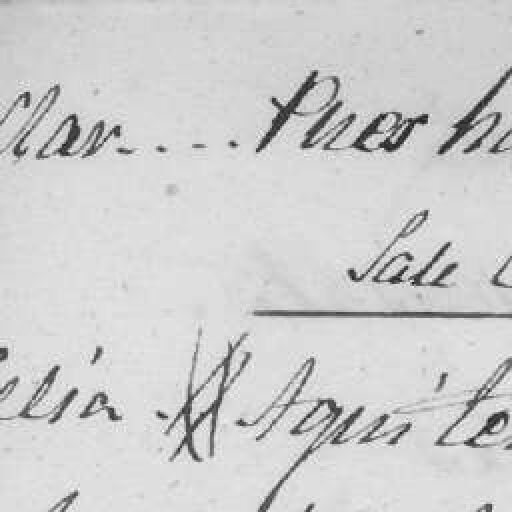 Clar.... Pues h
Sale
elia. Aqui te